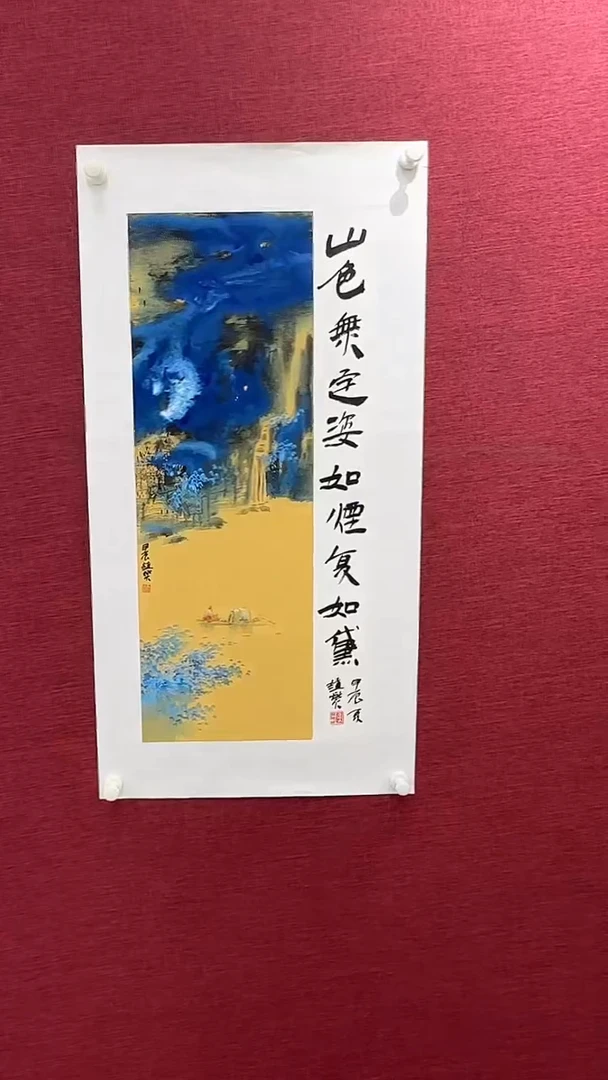 山色無定姿如煙复如黛
甲辰夏
甲辰